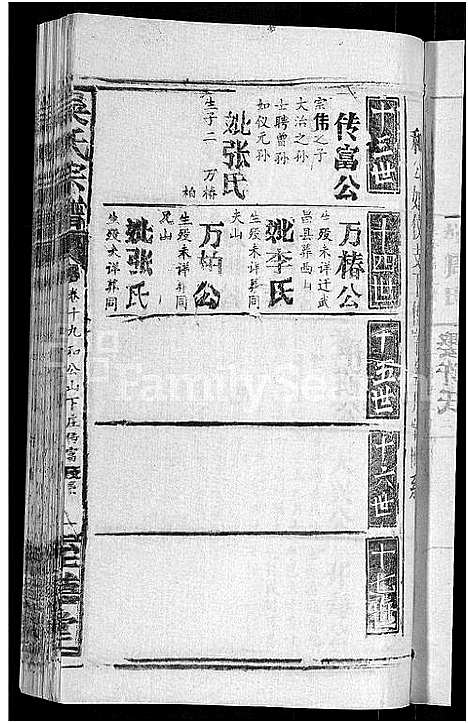 十三世
传富公
宗伟之子
大治之孙
士聘曾孙
如仪元孙
妣张氏
生子二 万椿
柏
十四世
万椿公
生殁未详迁武
昌县葬西山
妣李氏
生殁未详葬同
夫山
万柏公
生殁未详葬同
兄山
妣张氏
生殁夫详葬同
十五世
十六世
十七世
吴氏宗谱
卷十九和公山下庄传富
至德堂
FamilySearch